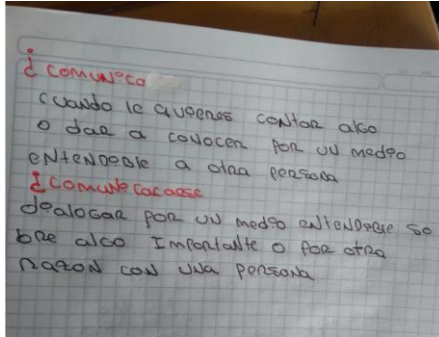 ¿comunico
cuando le quieres contar algo
o dar a conocer por un medio
entendible a otra persona
¿comunicacarse
dialogar por un medio entendible so
bre algo Importante o por otra
razon con una persona